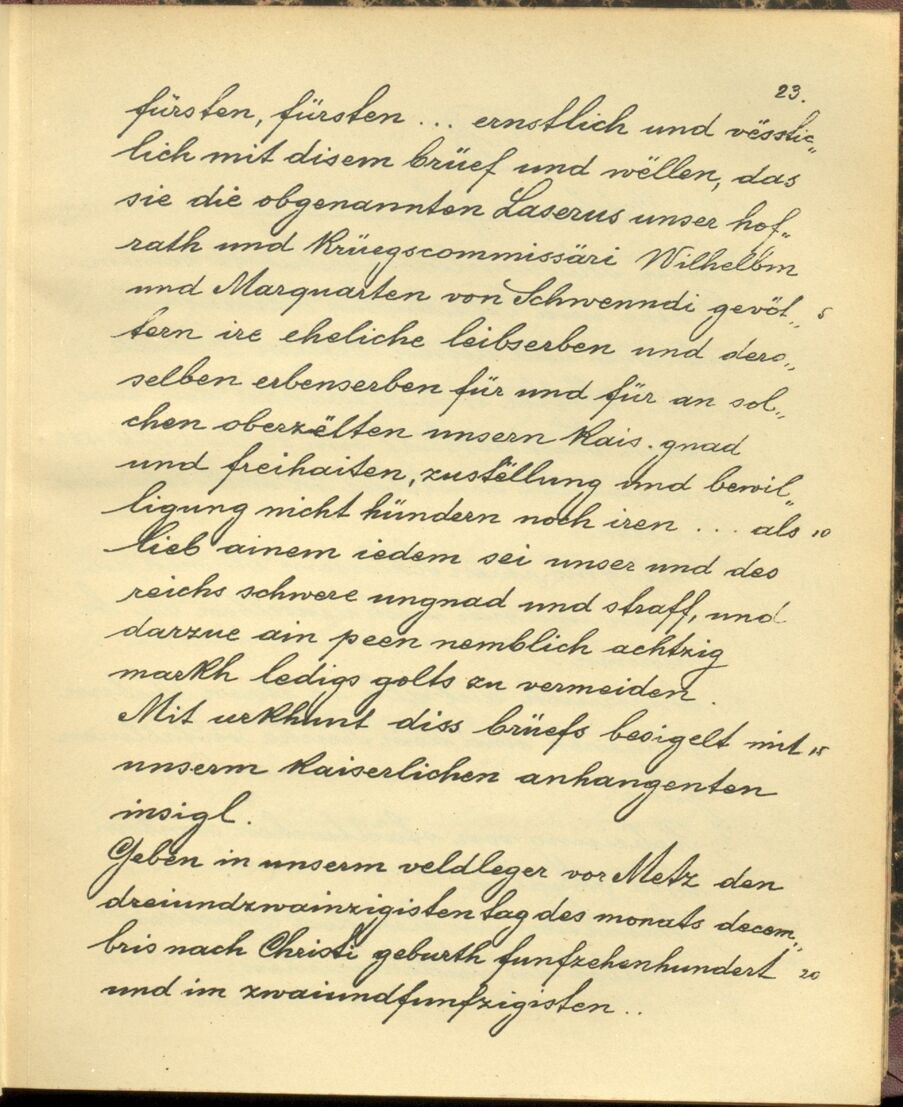 23.
fürsten, fürsten ... ernstlich und vësstic„
lich mit disem brüef und wëllen, das
sie die obgenannten Laserus unser hof„
rath und krüegscommissäri Wilhelbm
und Marquarten von Schwenndi gevöt„ 5
tern ire eheliche leibserben und dero„
selben erbenserben für und für an sol„
chen oberzëlten unsern kais. gnad
und freihaiten, zustëllung und bewil„
ligung nicht hündern noch iren ... als 10
lieb ainem iedem sei unser und des
reichs schwere ungnad und straff, und
darzue ain peen nemblich achtzig
markh ledigs golts zu vermeiden.
Mit urkhunt diss brüefs besigelt mit 15
unserm kaiserlichen anhangenten
insigl.
Geben in unserm veldleger vor Metz den
dreiundzwainzigisten tag des monats decem„
bris nach Christi geburth funfzehenhundert 20
und im zwaiundfunfzigisten..